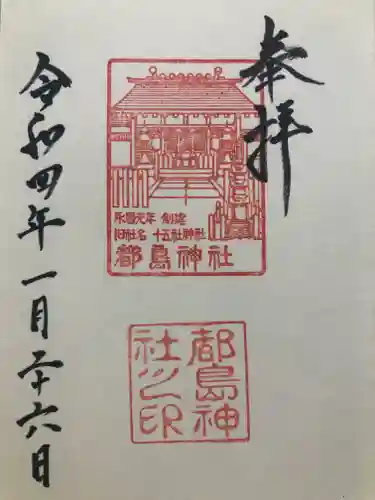 奉拝
永暦元年 創建
旧社名 十五社神社
都島神社
都島神
社之印
令和四年一月二十六日